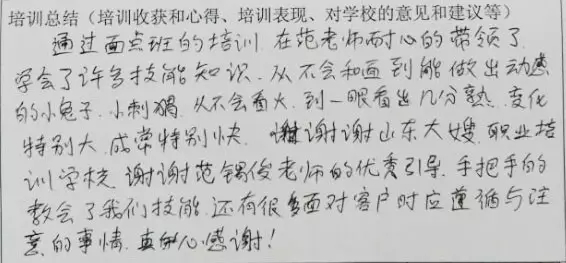 培训总结（培训收获和心得、培训表现、对学校的意见和建议等）
通过面点班的培训.在范老师耐心的带领了
学会了许多技能知识.从不会和面到能做出动感
的小兔子.小刺猬.从不会看火.到一眼看出几分熟.变化
特别大.成常特别快.谢谢山东大嫂.职业培
训学校.谢谢范锡俊老师的优秀引导.手把手的
教会了我们技能.还有很多面对客户时应遵循与注
意的事情.真的心感谢!